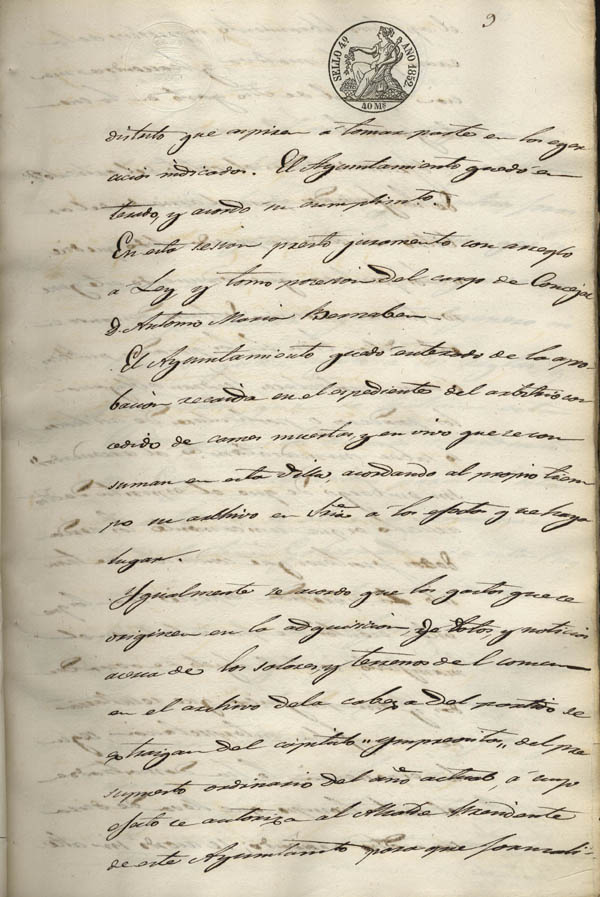 9
SELLO 4º AÑO 1882
40 Ms
distrito que aspiren a tomar parte en los eger-
cicios indicados. El Ayuntamiento quedo en
terado, y acordo su cumplimto.
En esta sesion presto juramento con arreglo
a Ley y tomo posesion del cargo de Concejal
D. Antonio Maria Bernabeu.
El Ayuntamiento quedó enterado de la apro-
bacion recaida en el espediente del arbitrio con
cedido de carnes muertas, y en vivo que se con
suman en esta Villa, acordando al propio tiem
po su archivo en Sria a los efectos que haya
lugar.
Ygualmente se acordo que los gastos que se
originen en la adquisicion, de datos, y noticias
acerca de los solares, y terrenos del comun
en el archivo dela cabeza del partido se
extraigan del capitulo "ymprevistos" del pre
supuesto ordinario del año actual, á cuyo
efecto se autoriza al Alcalde Presidente
de este Ayuntamto para que formali-